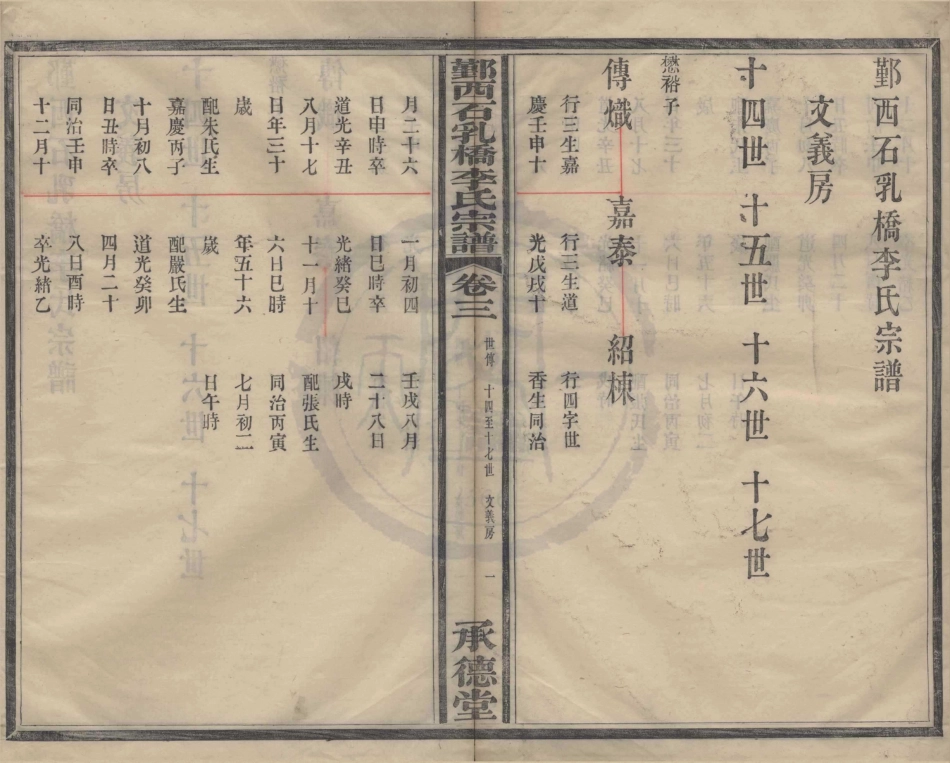 鄞西石乳橋李氏宗譜
文義房
十四世 十五世 十六世 十七世
懋裕子
傳熾 嘉泰 紹棟
行三生嘉 行三生道 行四字世
慶壬申十 光戊戌十 香生同治
鄞西石乳橋李氏宗譜 卷三 世傳 十四至十七世 文義房 一 承德堂
月二十六 一月初四 壬戌八月
日申時卒 日巳時卒 二十八日
道光辛丑 光緒癸巳 戌時
八月十七 十一月十 配張氏生
日年三十 六日巳時 同治丙寅
歲 年五十六 七月初二
配朱氏生 歲 日午時
嘉慶丙子 配嚴氏生
十月初八 道光癸卯
日丑時卒 四月二十
同治壬申 八日酉時
十二月十 卒光緒乙